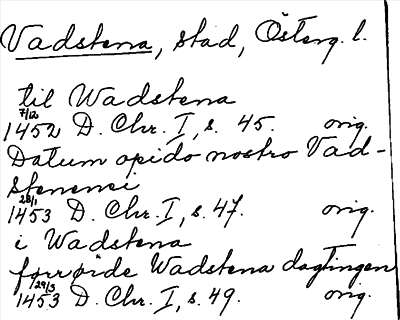 Vadstena, stad, Österg. l.
til Wadstena
7/12
1452 D. Chr. I, s. 45. orig.
Datum opido nostro Vad-
stenensi
28/1
1453 D. Chr. I, s. 47. orig.
i Wadstena
forr øide Wadstena dagtingen
29/3
1453 D. Chr. I, s. 49. orig.